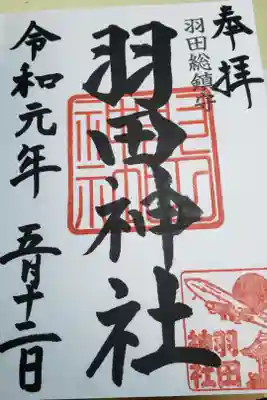 奉拝
羽田総鎮守
羽田神社
令和元年 五月十二日
羽田
神社